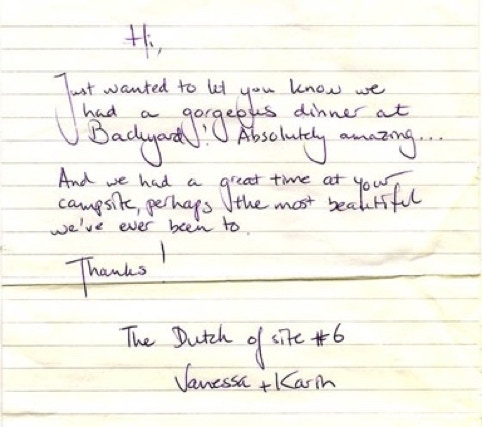 Hi,
Just wanted to let you know we
had a gorgeous dinner at
Backyard! Absolutely amazing...
And we had a great time at your
campsite, perhaps the most beautiful
we've ever been to.
Thanks!
The Dutch of site #6
Vanessa + Karin